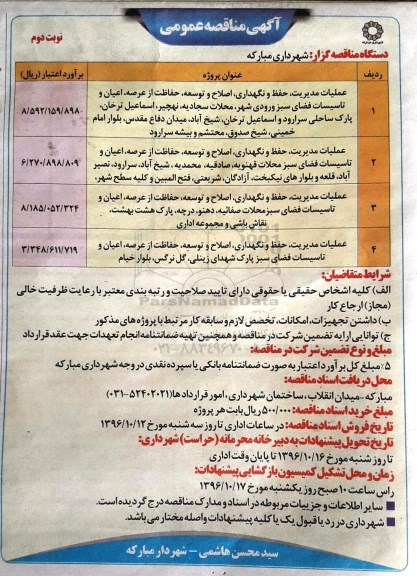 آگهی مناقصه عمومی
نوبت دوم
دستگاه مناقصه گزار: شهرداری مبارکه
ردیف
عنوان پروژه
برآورد اعتبار (ریال)
۱
عملیات مدیریت، حفظ و نگهداری، اصلاح و توسعه، حفاظت از عرصه، اعیان و
تاسیسات فضای سبز ورودی شهر، محلات سجادیه، نهچیر، اسماعیل ترخان،
پارک ساحلی سرارود و اسماعیل ترخان، شیخ آباد، میدان دفاع مقدس، بلوار امام
خمینی، شیخ صدوق، محتشم و بیشه سرارود
۸/۵۹۲/۱۵۹/۸۹۸
۲
عملیات مدیریت، حفظ و نگهداری، اصلاح و توسعه، حفاظت از عرصه، اعیان و
تاسیسات فضای سبز محلات قهنویه، صادقیه، محمدیه، شیخ آباد، سرارود، نصیر
آباد، قلعه و بلوار های نیکبخت، آزادگان، شریعتی، فتح المبین و کلیه سطح شهر،
۶/۲۷۰/۸۹۸/۸۰۹
۳
عملیات مدیریت، حفظ و نگهداری، اصلاح و توسعه، حفاظت از عرصه، اعیان و
تاسیسات فضای سبز محلات صفائیه، دهنو، درچه، پارک هشت بهشت،
نقاش باشی و مجموعه اداری
۸/۱۸۵/۰۵۲/۳۲۴
۴
عملیات مدیریت، حفظ و نگهداری، اصلاح و توسعه، حفاظت از عرصه، اعیان و
تاسیسات فضای سبز پارک شهدای زینلی، گل نرگس، بلوار خیام
۳/۳۴۸/۶۱۱/۷۱۹
شرایط متقاضیان:
الف) کلیه اشخاص حقیقی یا حقوقی دارای تایید صلاحیت و رتبه بندی معتبر با رعایت ظرفیت خالی
(مجاز) ارجاع کار
ب) داشتن تجهیزات، امکانات، تخصص لازم و سابقه کار مرتبط با پروژه های مذکور
ج) توانایی ارایه تضمین شرکت در مناقصه و همچنین تهیه ضمانتنامه انجام تعهدات جهت عقد قرارداد
مبلغ و نوع تضمین شرکت در مناقصه:
۵٪ مبلغ کل برآورد اعتبار به صورت ضمانتنامه بانکی یا سپرده نقدی در وجه شهرداری مبارکه
محل دریافت اسناد مناقصه:
مبارکه - میدان انقلاب، ساختمان شهرداری، امور قراردادها (۵۲۴۰۲۰۲۱-۰۳۱)
مبلغ خرید اسناد مناقصه: ۵۰۰/۰۰۰ ریال بابت هر پروژه
تاریخ فروش اسناد مناقصه: در ساعات اداری تا روز سه شنبه مورخ ۱۳۹۶/۱۰/۱۲
تاریخ تحویل پیشنهادات به دبیرخانه محرمانه (حراست) شهرداری:
تا روز شنبه مورخ ۱۳۹۶/۱۰/۱۶ تا پایان وقت اداری
زمان و محل تشکیل کمیسیون بازگشایی پیشنهادات:
راس ساعت ۱۰ صبح روز یکشنبه مورخ ۱۳۹۶/۱۰/۱۷
سایر اطلاعات و جزییات مربوطه در اسناد و مدارک مناقصه درج گردیده است.
شهرداری در رد یا قبول یک یا کلیه پیشنهادات واصله مختار می باشد.
سید محسن هاشمی - شهردار مبارکه